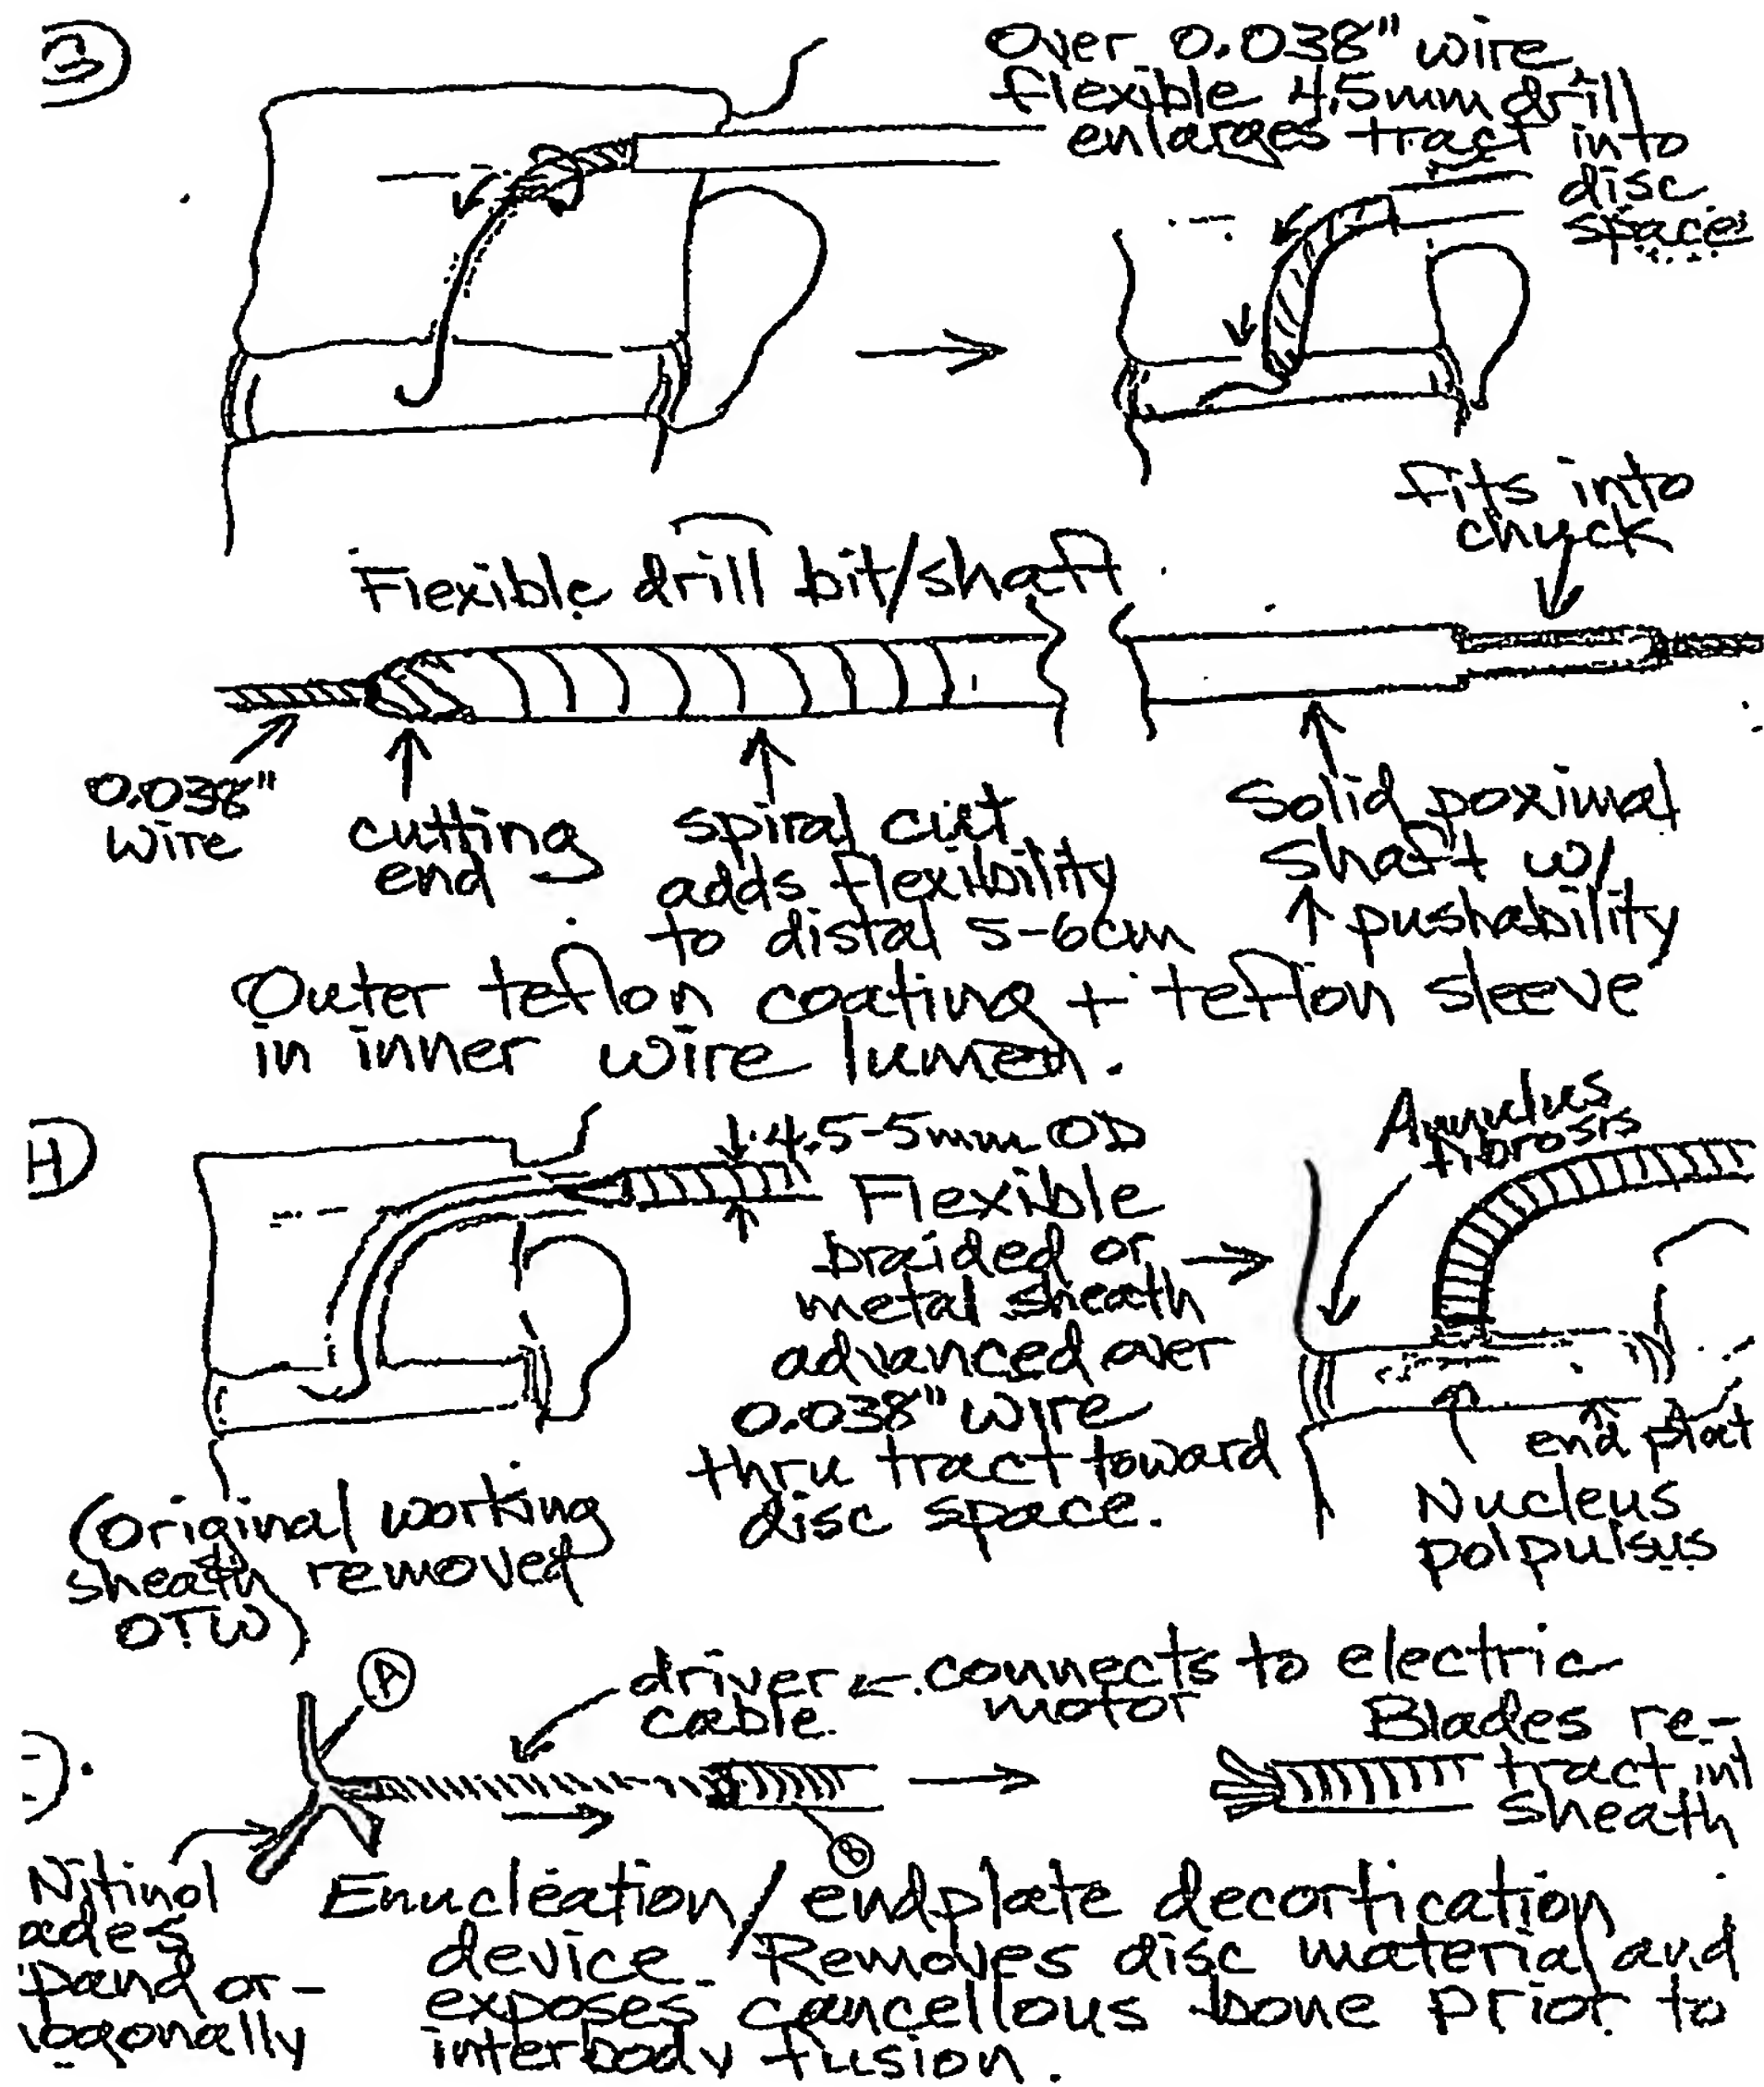 Over 0.038" wire
flexible 4.5mm drill
enlarges tract into
disc
space
Fits into
chuck
Flexible drill bit/shaft
0.038"
wire
cutting
end
spiral cut
adds flexibility
to distal 5-6cm
Solid poximal
shaft w/
pushability
Outer teflon coating + teflon sleeve
in inner wire lumen.
H)
4.5-5mm OD
Flexible
braided or
metal sheath
advanced over
0.038" wire
thru tract toward
disc space.
Annulus
fibrosis
end plat
Nucleus
polpulsus
(Original working
sheath removed
OTW)
A
driver
cable
connects to electric
motor
Blades re-
tract int
sheath
B
Nitinol
ades
pand or-
ogonally
Enucleation/endplate decortication
device. Removes disc material and
exposes cancellous bone prior to
interbody fusion.